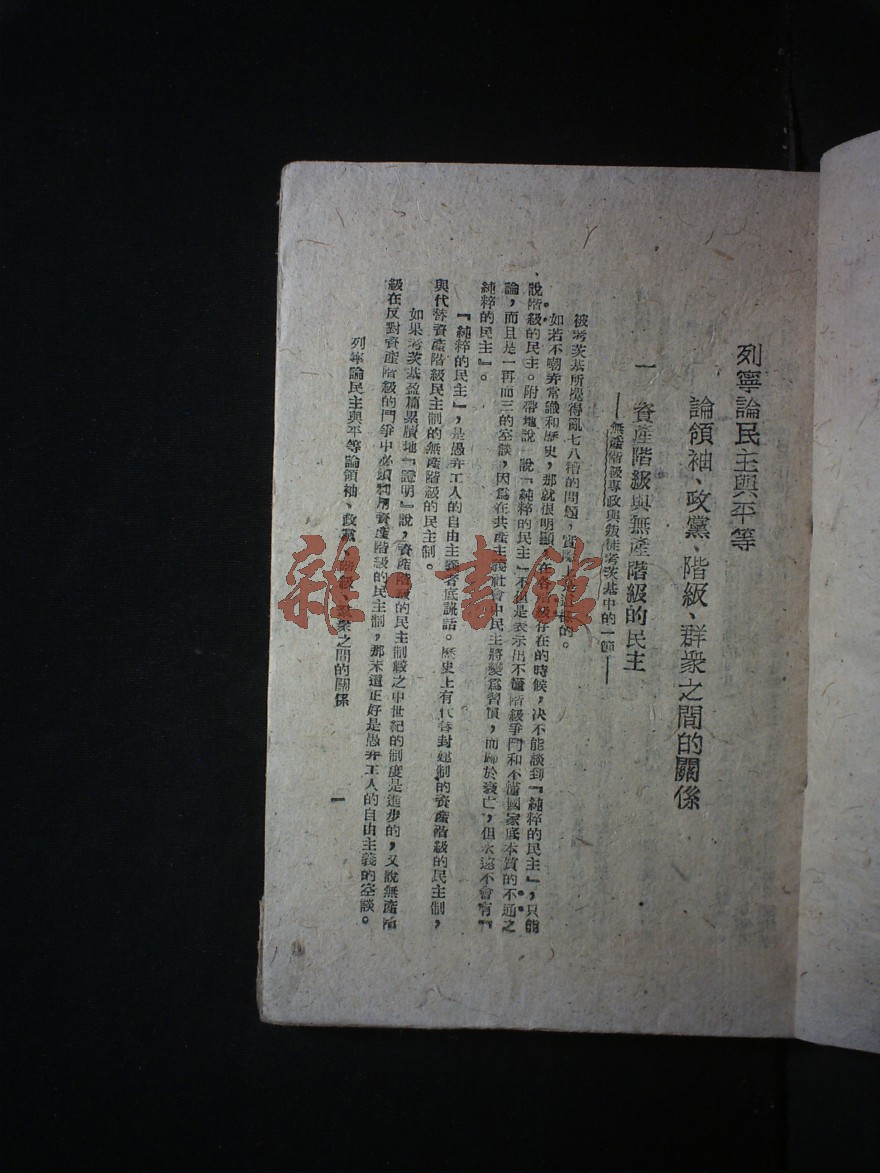 列寧論民主與平等
論領袖、政黨、階級、群衆之間的關係
一　資產階級與無產階級的民主
——無產階級專政與叛徒考茨基中的一節——
被考茨基所攪得亂七八糟的問題，實際上是這樣的。
如若不嘲弄常識和歷史，那就很明顯，在各階級存在的時候，决不能談到『純粹的民主』，只能
說階級的民主。附帶地說一說『純粹的民主』不但是表示出不懂階級爭鬥和不懂國家底本質的不通之
論，而且是一再而三的空談，因爲在共產主義社會中民主將變爲習慣，而歸於衰亡，但永遠不會有『
純粹的民主』。
『純粹的民主』，是愚弄工人的自由主義者底謊話。歷史上有代替封建制的資產階級的民主制，
與代替資產階級民主制的無產階級的民主制。
如果考茨基盈篇累牘地『證明』說，資產階級的民主制較之中世紀的制度是進步的，又說無產階
級在反對資產階級的鬥爭中必須利用資產階級的民主制，那末這正好是愚弄工人的自由主義的空談。
列寧論民主與平等論領袖、政黨、階級、羣衆之間的關係
一
雜・書館